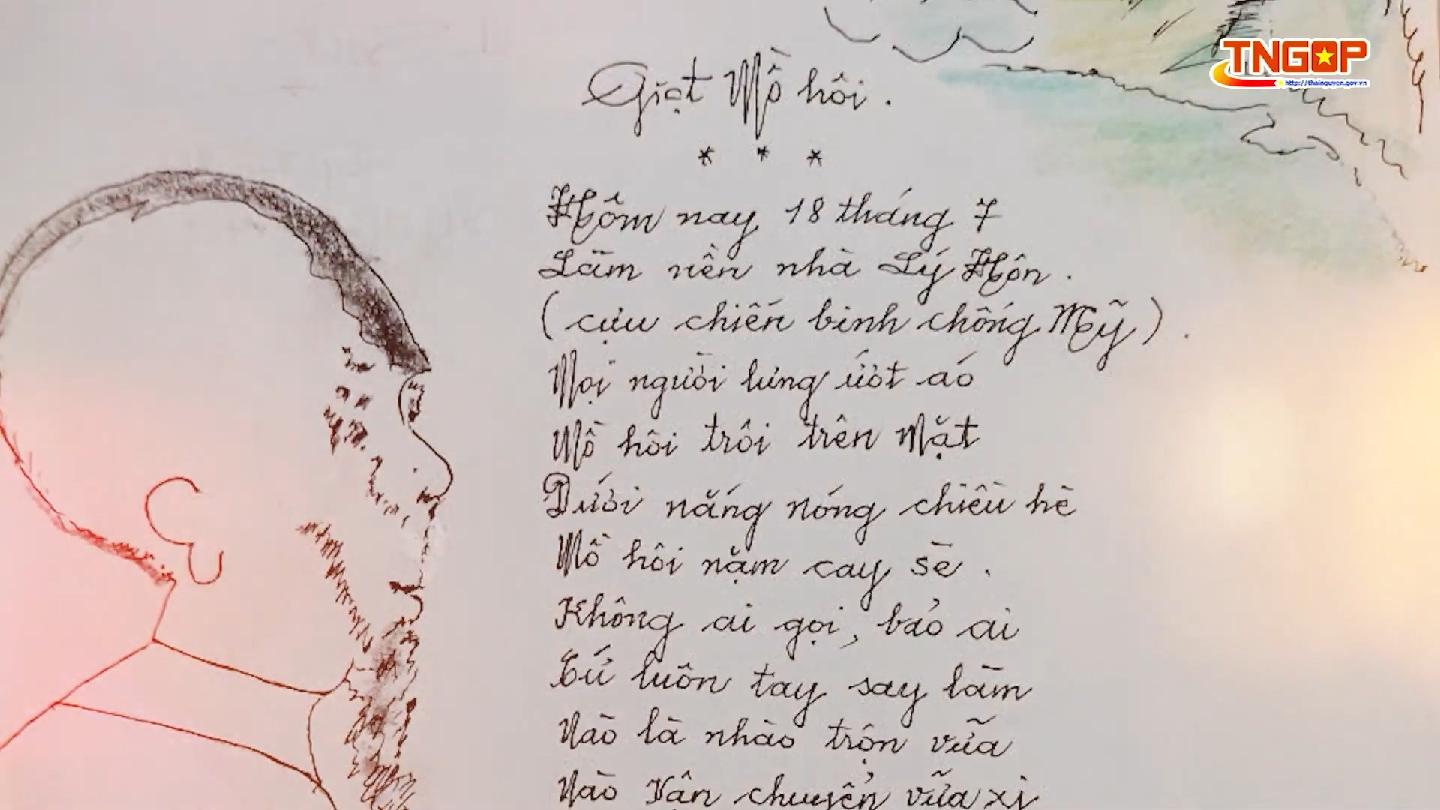 TNGOP
http://thainguyen.gov.vn
Giọt Mồ hôi.
* * *
Hôm nay 18 tháng 7
Làm nền nhà Lý Hôn.
(cựu chiến binh chống Mỹ).
Mọi người lưng ướt áo
Mồ hôi trôi trên Mặt
Dưới nắng nóng chiều hè
Mồ hôi nặm cay sè.
Không ai gọi, bảo ai
Cứ luôn tay say làm
Nào là nhào trộn vữa
Nào Vận chuyển vữa xi